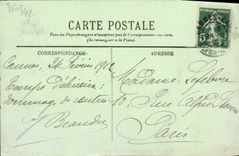 CARTE POSTALE
Tous les Pays étrangers n'acceptent pas la Correspondance au recto.
(Se renseigner à la Poste).
CORRESPONDANCE
ADRESSE
Cannes, 24 février 1912
Temps délicieux
Dommage de
Beaudry
Madame Lefebvre
10, Rue Alfred
Paris